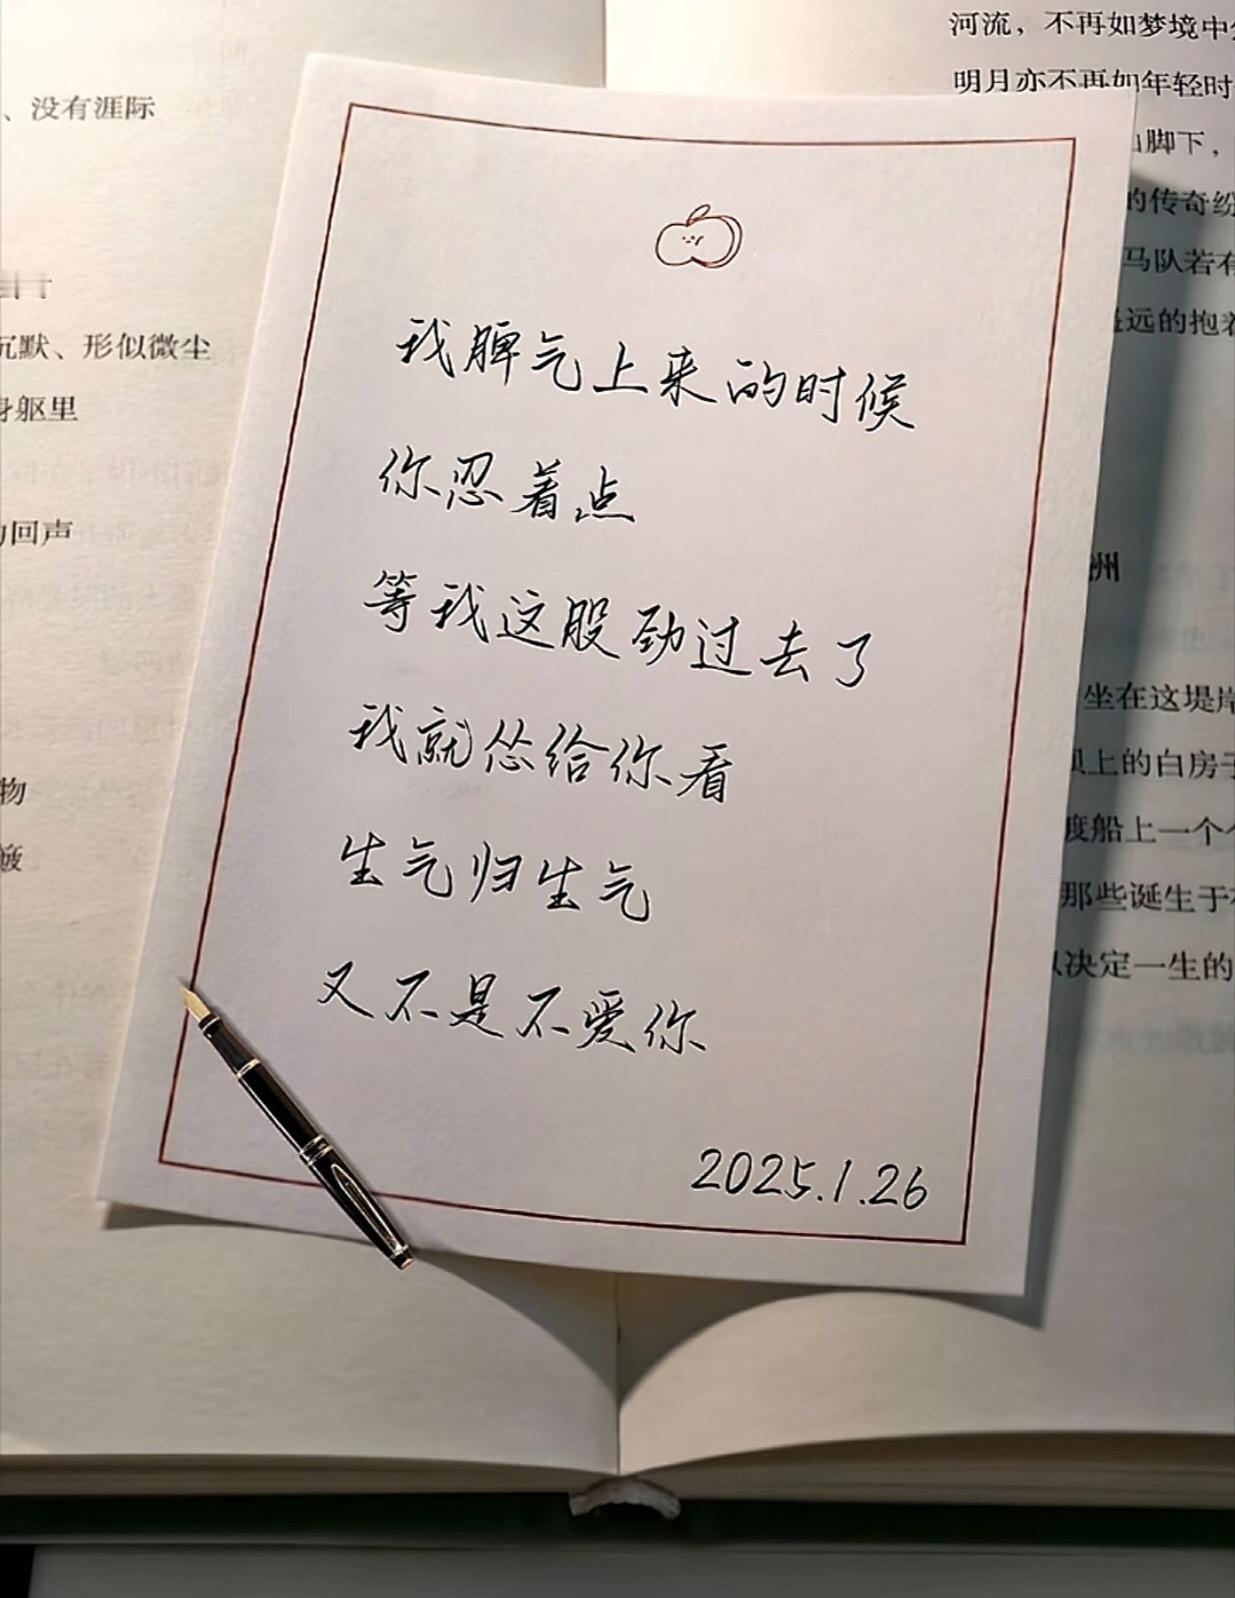 、没有涯际
沉默、形似微尘
身躯里
回声
物
河流，不再如梦境中
明月亦不再如年轻时
脚下，
的传奇纷
马队若有
远的抱着
洲
坐在这堤岸
上的白房子
渡船上一个个
那些诞生于
以决定一生的
我脾气上来的时候
你忍着点
等我这股劲过去了
我就怂给你看
生气归生气
又不是不爱你
2025.1.26